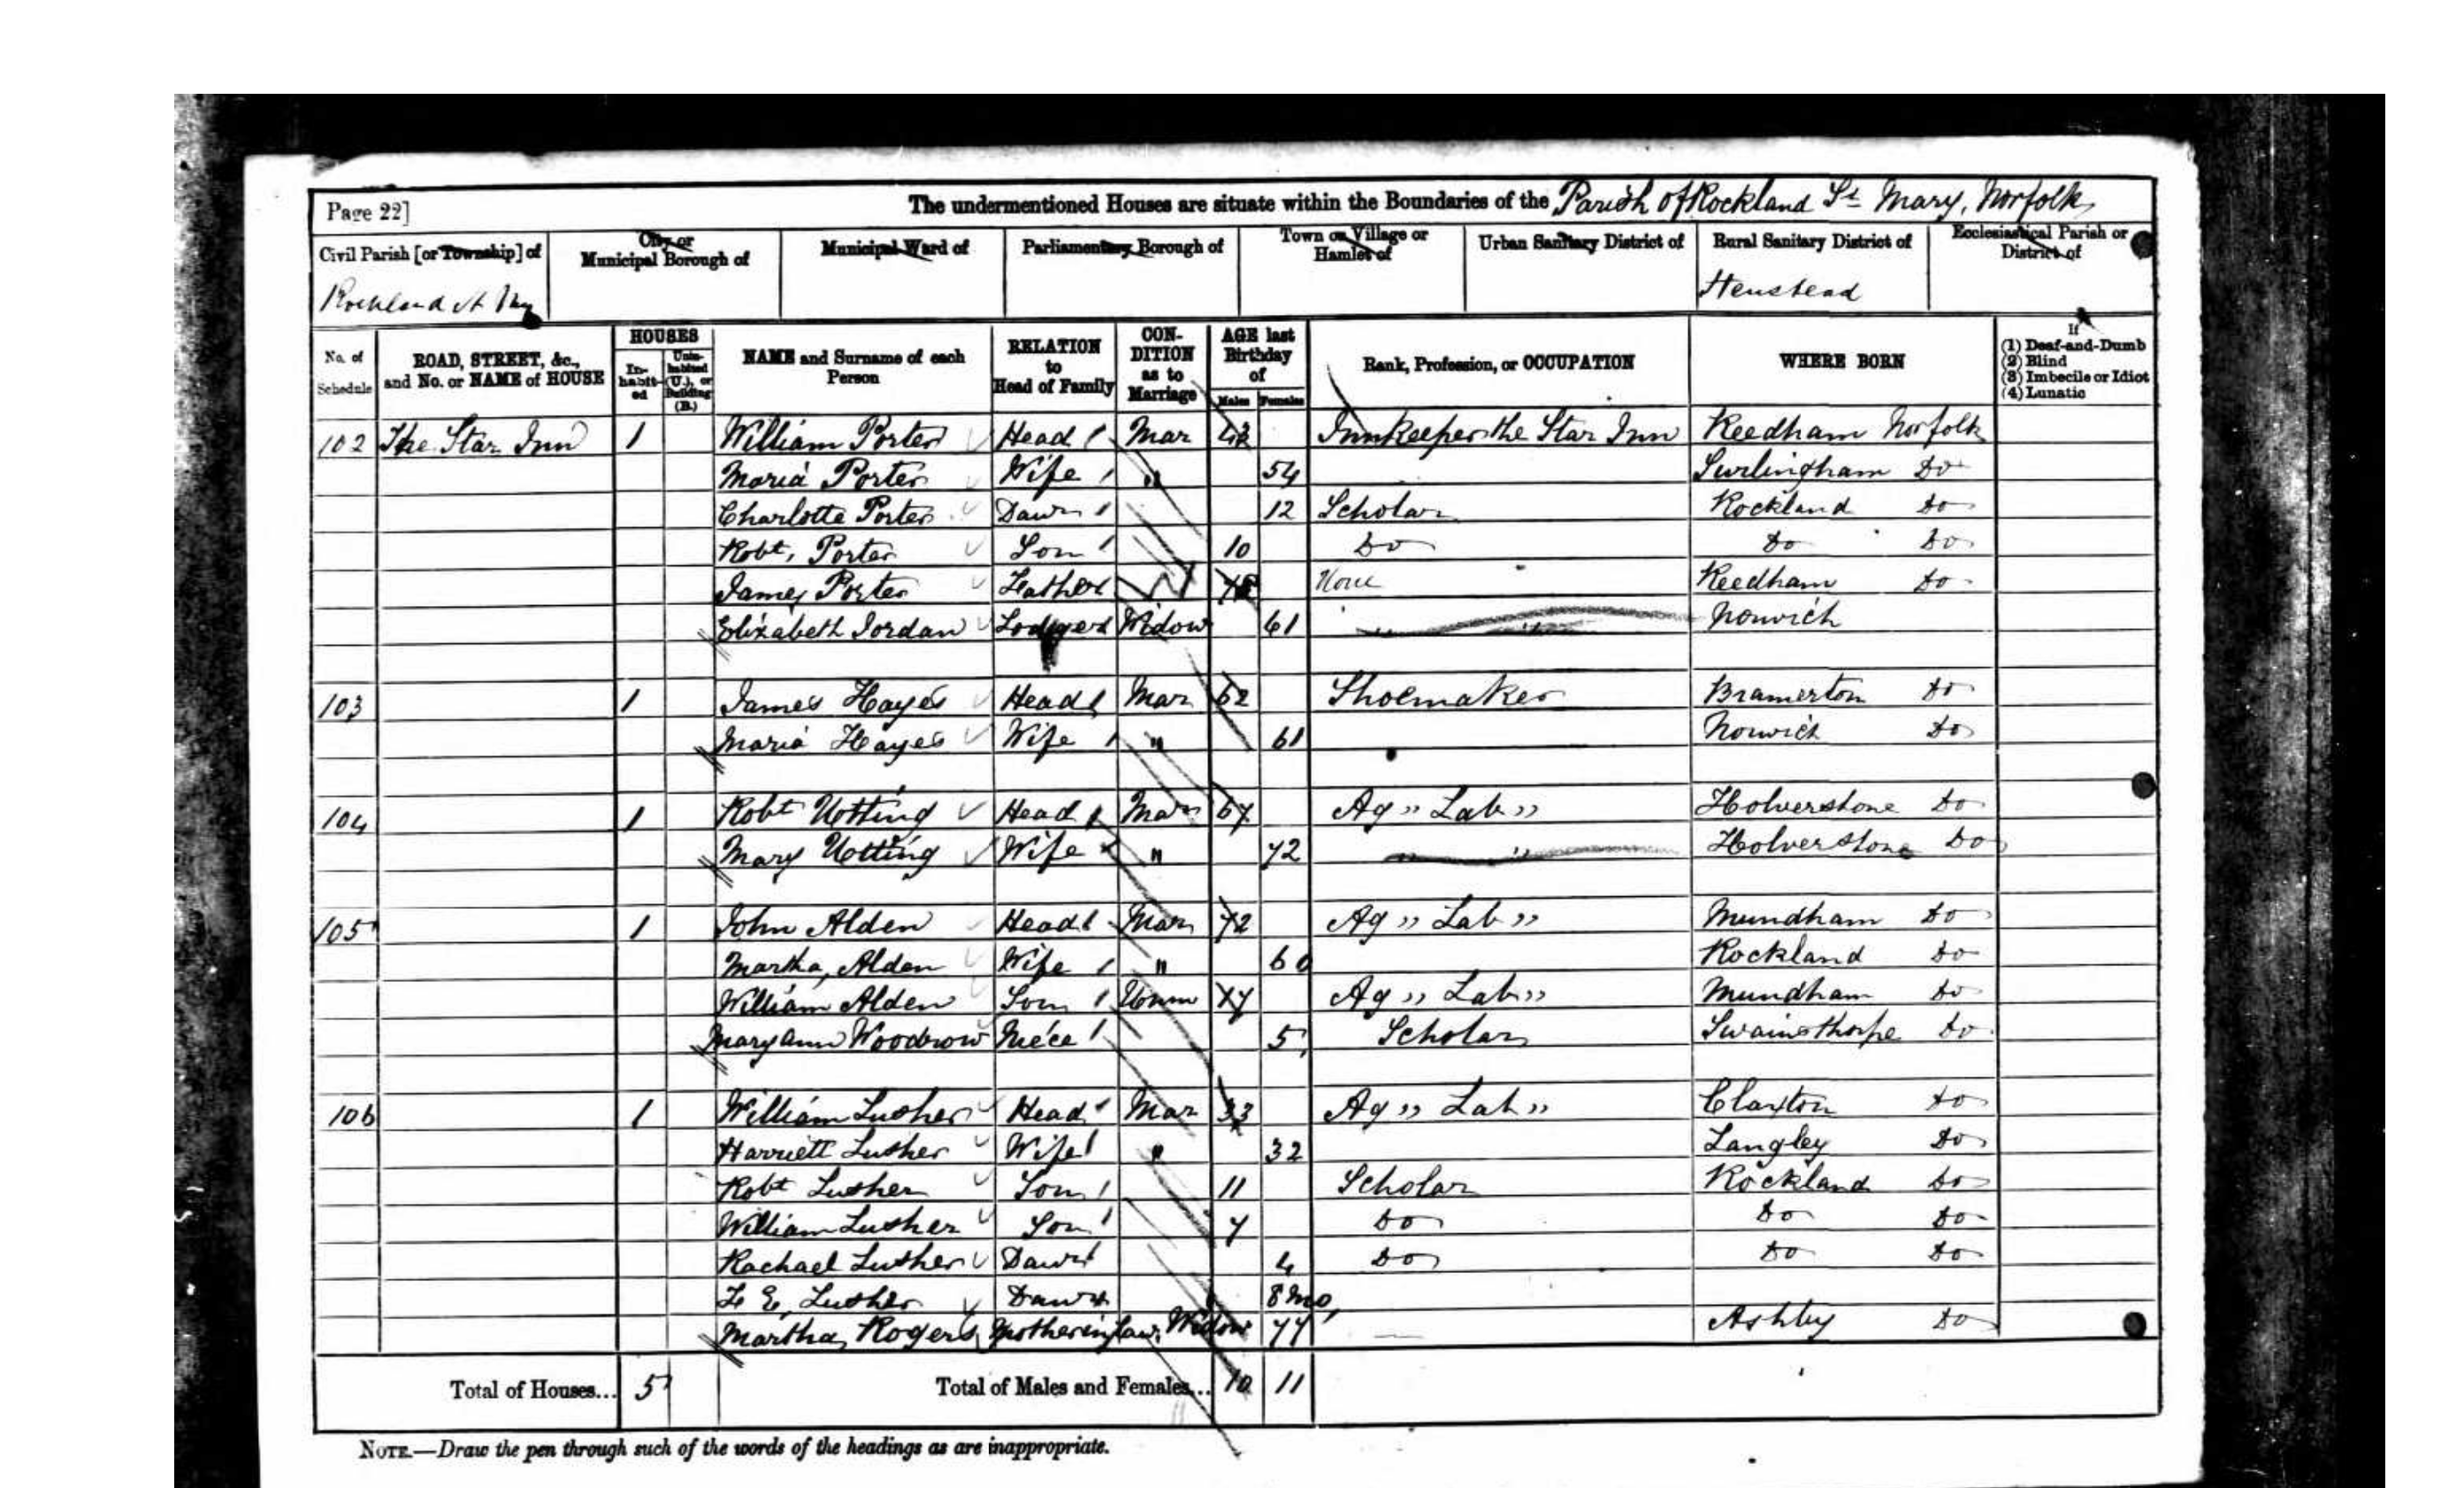 Page 22]
The undermentioned Houses are situate within the Boundaries of the Parish of Rockland St Mary, Norfolk
Civil Parish [or Township] of
City or Municipal Borough of
Municipal Ward of
Parliamentary Borough of
Town or Village or Hamlet of
Urban Sanitary District of
Rural Sanitary District of
Ecclesiastical Parish or District of
Rockland St My
Henstead
No. of Schedule
ROAD, STREET, &c., and No. or NAME of HOUSE
HOUSES
In-habit-ed
Unin-habited (U.), or Building (B.)
NAME and Surname of each Person
RELATION to Head of Family
CON-DITION as to Marriage
AGE last Birthday of
Males
Females
Rank, Profession, or OCCUPATION
WHERE BORN
If
(1) Deaf-and-Dumb
(2) Blind
(3) Imbecile or Idiot
(4) Lunatic
102 The Star Inn 1 William Porter Head Mar 42 Innkeeper the Star Inn Reedham Norfolk
Maria Porter Wife " 54 Surlingham Do
Charlotte Porter Dawr 12 Scholar Rockland Do
Robt, Porter Son 10 Do Do Do
James Porter Father W None Reedham Do
Elizabeth Jordan Lodger Widow 61 Norwich
103 1 James Hayes Head Mar 62 Shoemaker Bramerton Do
Maria Hayes Wife " 61 Norwich Do
104 1 Robt Utting Head Mar 67 Ag " Lab " Holverstone Do
Mary Utting Wife " 72 " " Holverstone Do
105 1 John Alden Head Mar 72 Ag " Lab " Mundham Do
Martha, Alden Wife " 60 Rockland Do
William Alden Son Unm Ag " Lab " Mundham Do
Mary Ann Woodrow Niece 5 Scholar Swainsthorpe Do
106 1 William Lusher Head Mar 33 Ag " Lab " Claxton Do
Harriett Lusher Wife " 32 Langley Do
Robt Lusher Son 11 Scholar Rockland Do
William Lusher Son 7 Do Do Do
Rachael Lusher Dawr 4 Do Do Do
E, Lusher Dawr 8 mo,
Martha, Rogers Motherinlaw Widow 77 Ashby Do
Total of Houses... 5
Total of Males and Females... 10 11
NOTE.—Draw the pen through such of the words of the headings as are inappropriate.